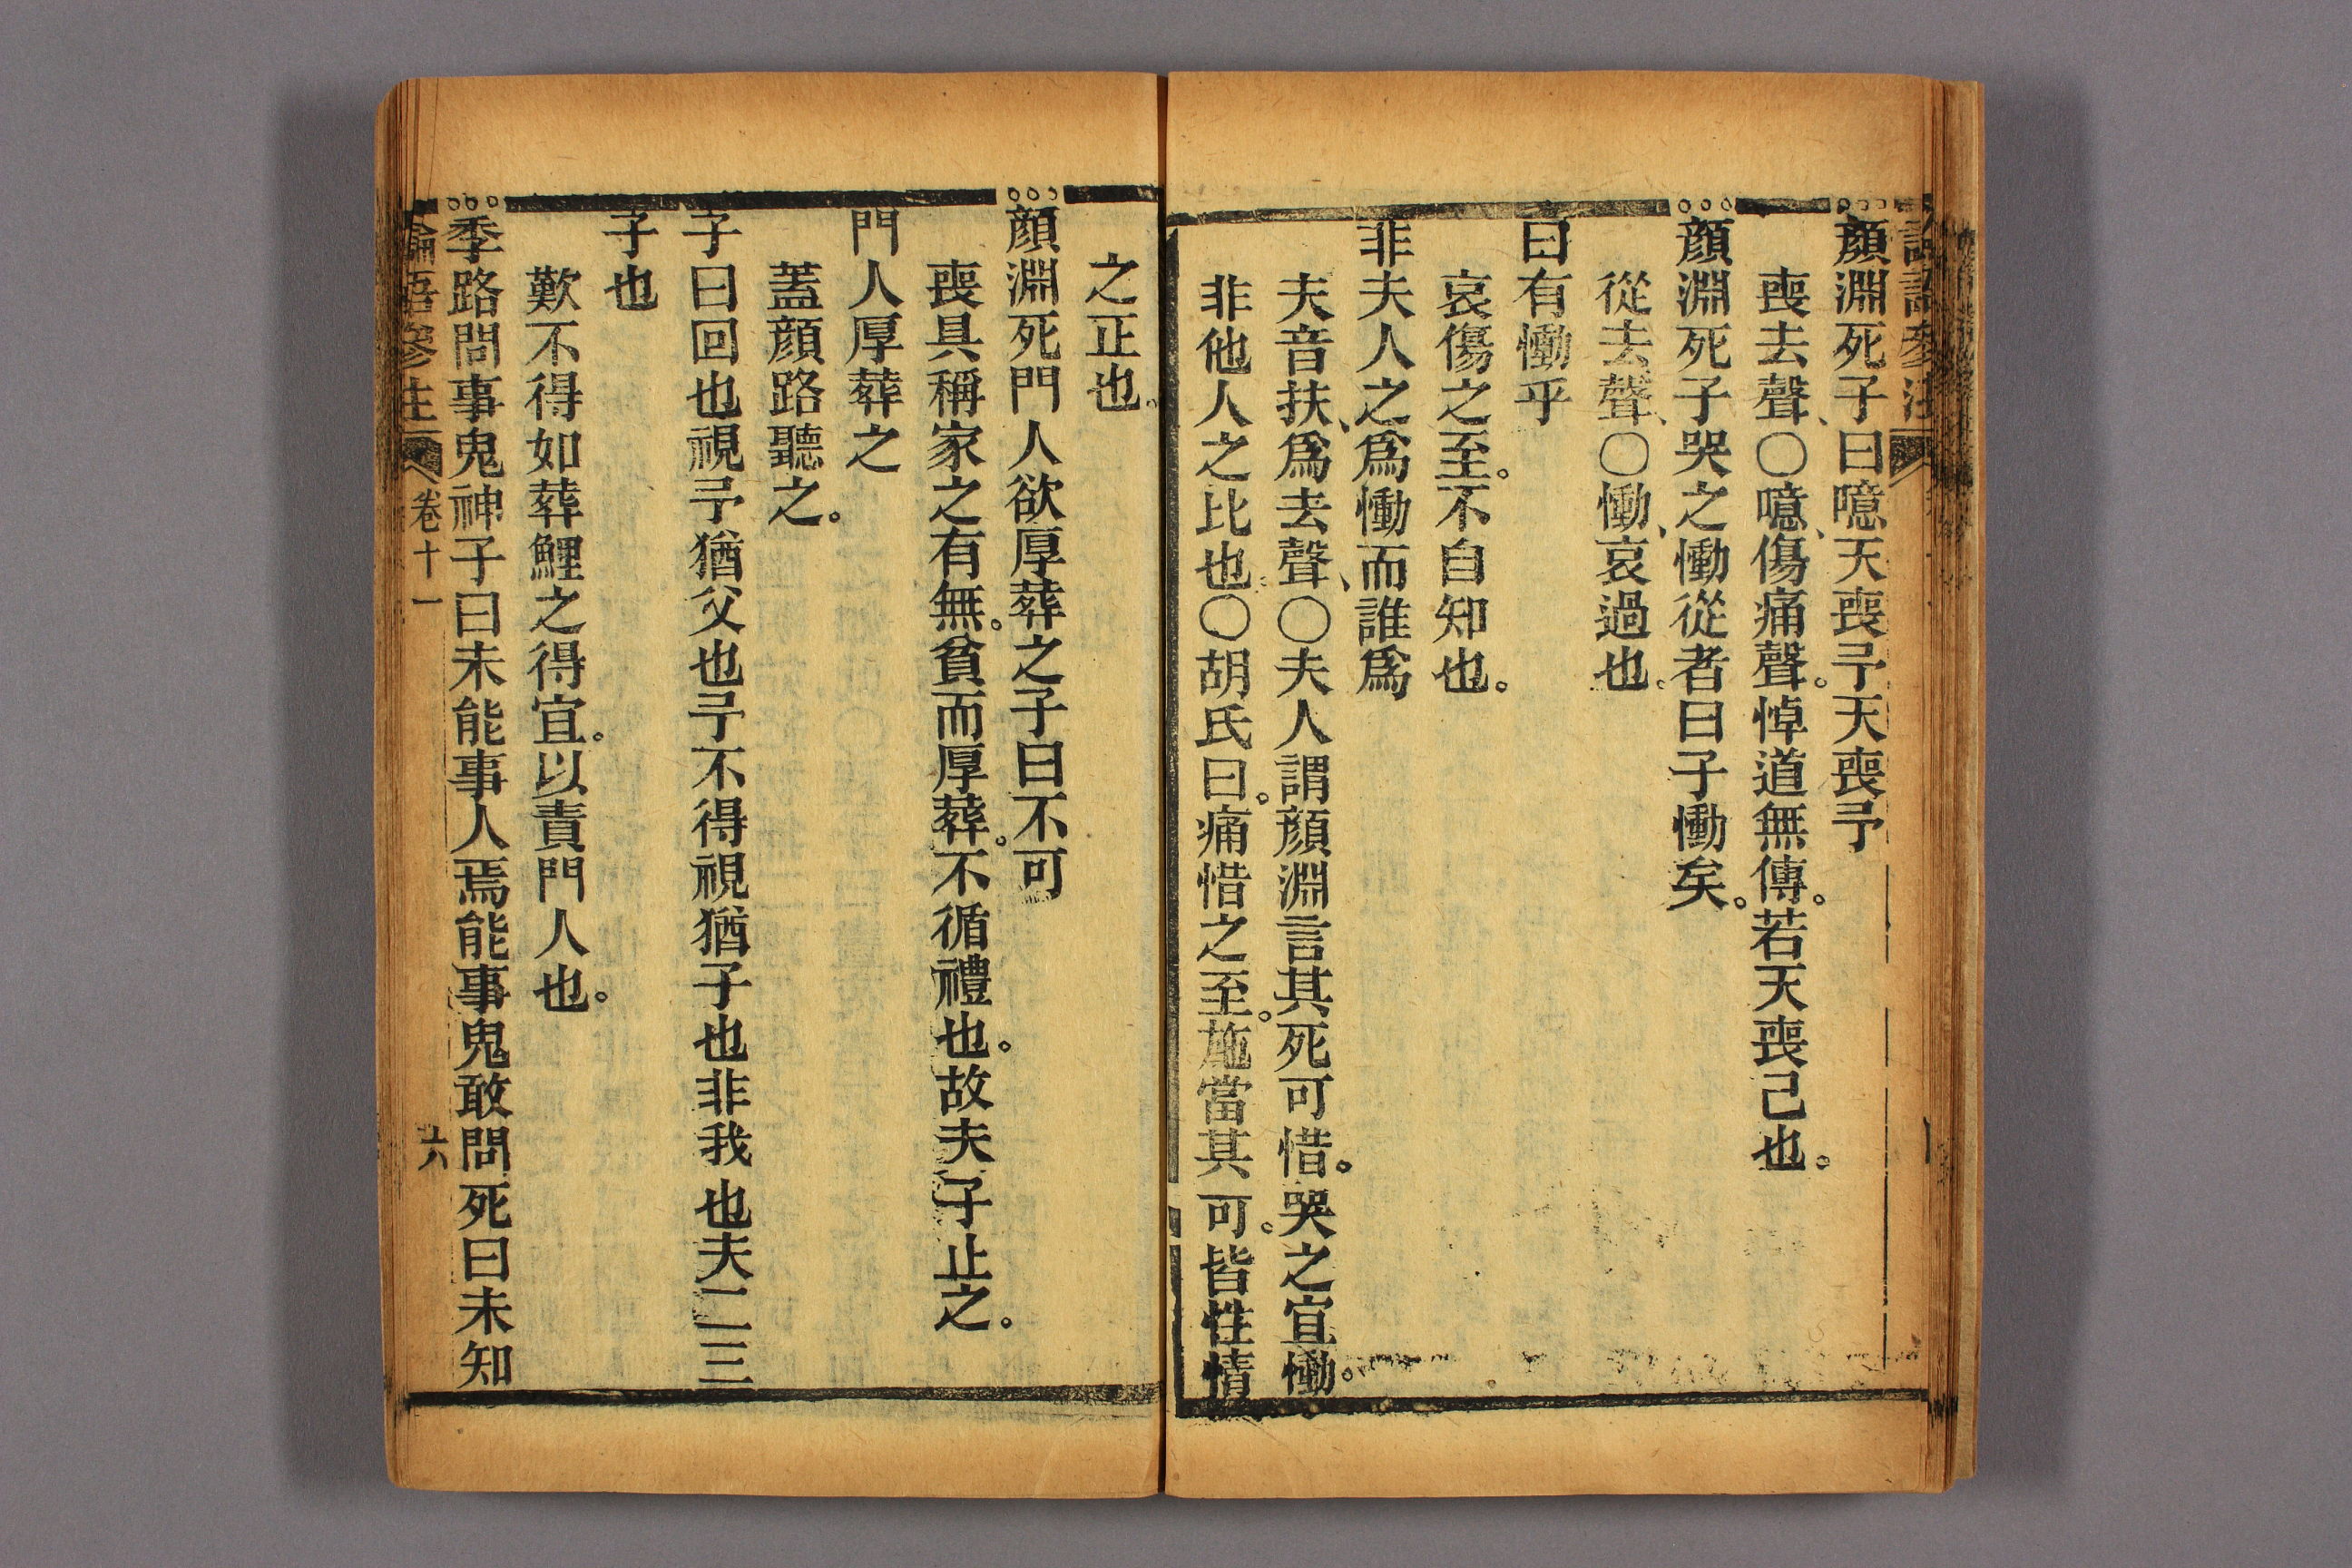 顏淵死子曰噫天喪予天喪予
喪去聲、○噫、傷痛聲。悼道無傳。若天喪己也。
顏淵死子哭之慟從者曰子慟矣。
從去聲、○慟、哀過也。
曰有慟乎
哀傷之至。不自知也。
非夫人之爲慟而誰爲
夫音扶、爲去聲、○夫人謂顏淵言其死可惜。哭之宜慟。
非他人之比也。○胡氏曰。痛惜之至。施當其可。皆性情
之正也。
顏淵死門人欲厚葬之子曰不可
喪具稱家之有無。貧而厚葬。不循禮也。故夫子止之。
門人厚葬之
蓋顏路聽之。
子曰回也視予猶父也予不得視猶子也非我也夫二三
子也
歎不得如葬鯉之得宜。以責門人也。
季路問事鬼神子曰未能事人焉能事鬼敢問死曰未知
論語參註
卷十一
六